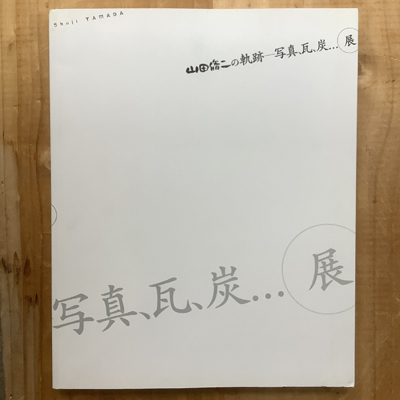 Shuji YAMADA
山田脩二の軌跡—写真、瓦、炭…展
写真、瓦、炭…展